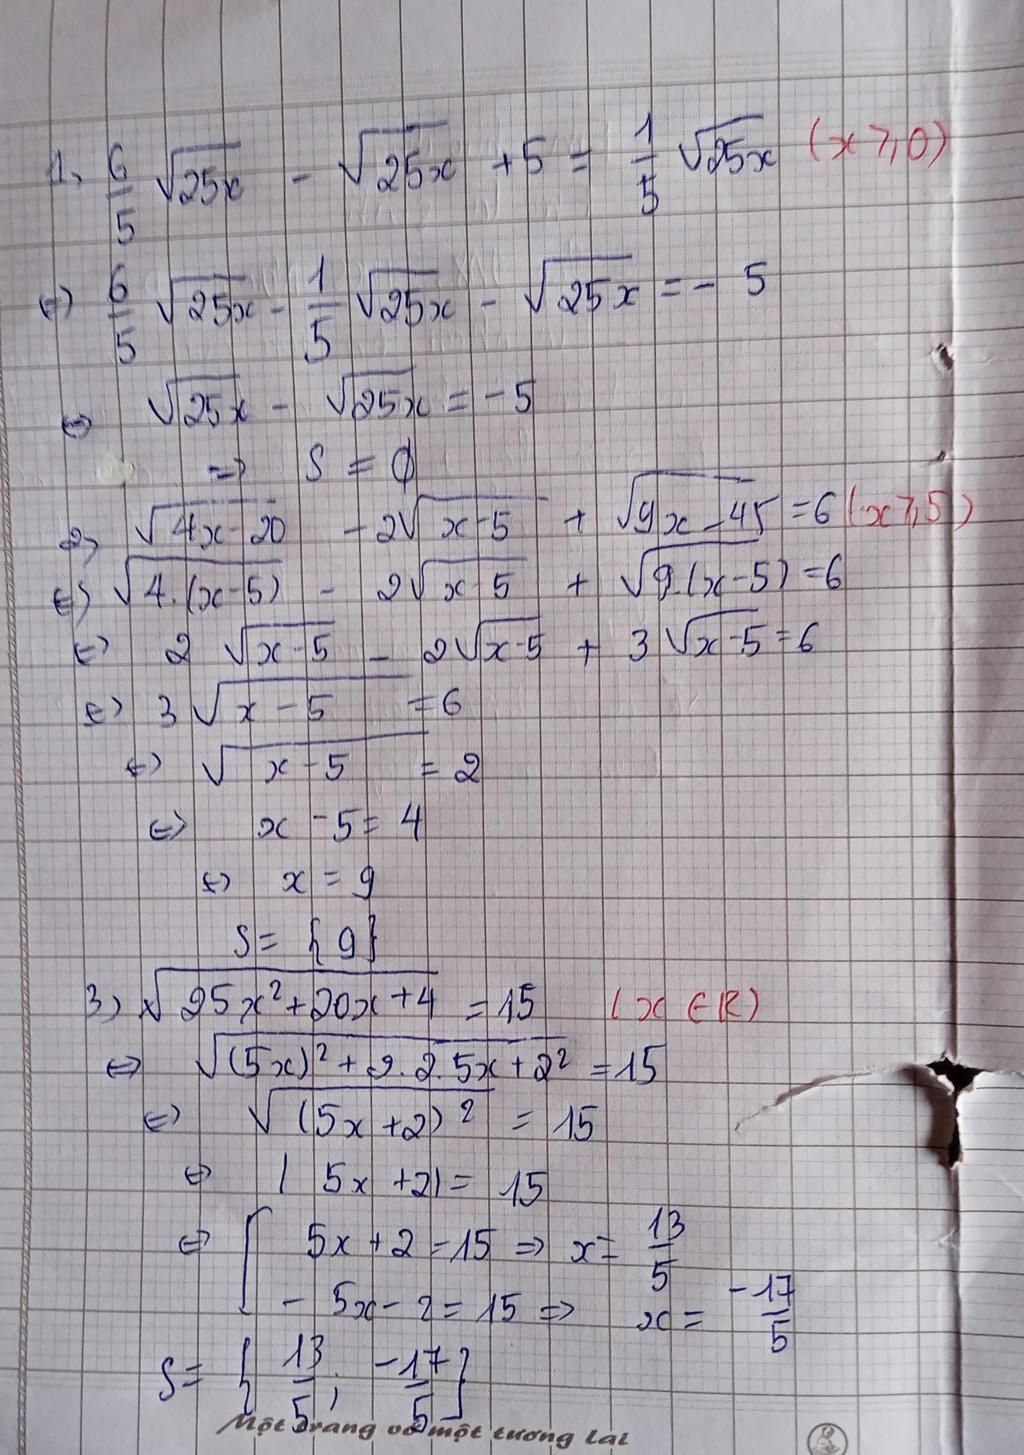 1, 6/5 √25x - √25x + 5 = 1/5 √25x (x ⩾ 0)
⇔ 6/5 √25x - 1/5 √25x - √25x = - 5
⇔ √25x - √25x = -5
⇒ S = ∅
2, √4x-20 - 2√x-5 + √9x-45 = 6 (x ⩾ 5)
⇔ √4.(x-5) - 2√x-5 + √9.(x-5) = 6
⇔ 2 √x-5 - 2√x-5 + 3 √x-5 = 6
⇔ 3 √x-5 = 6
⇔ √x-5 = 2
⇔ x - 5 = 4
⇔ x = 9
S = {9}
3, √25x²+20x+4 = 15 (x ∈ R)
⇔ √(5x)² + 2.2.5x + 2² = 15
⇔ √(5x+2)² = 15
⇔ |5x+2| = 15
⇔ [ 5x+2 = 15 ⇒ x = 13/5
- 5x - 2 = 15 ⇒ x = -17/5
S = { 13/5 ; -17/5 }
Một trang vở một tương lai